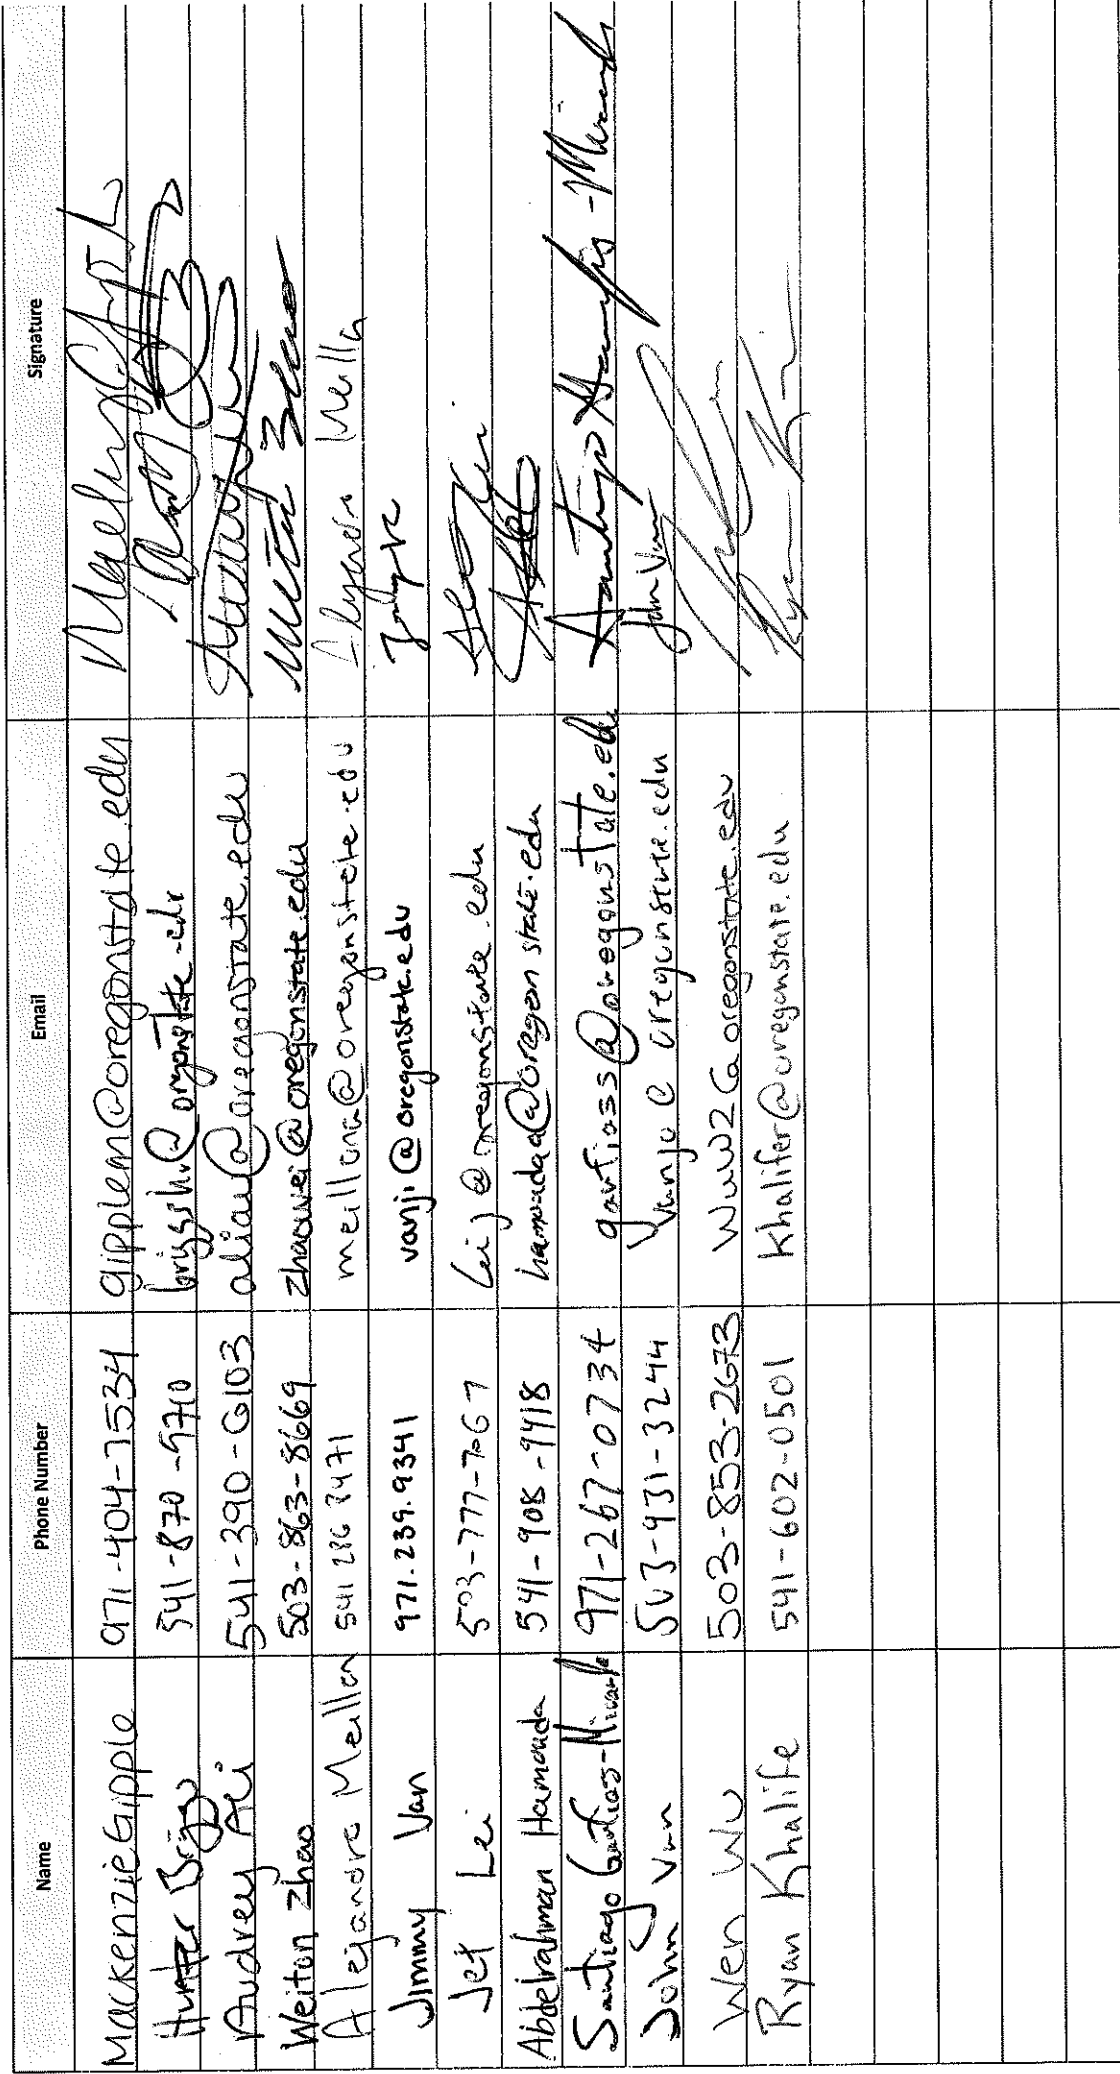 Name Phone Number Email Signature
Mackenzie Gipple 971-404-7534 gipplem@oregonstate.edu
Hunter Briggs 541-870-9710 briggshu@oregonstate.edu
Audrey Ali 541-390-6103 aliau@oregonstate.edu
Weiton Zhao 503-863-8669 zhaowei@oregonstate.edu
Alejandro Meillon 541 286 8471 meillona@oregonstate.edu
Jimmy Van 971.239.9341 vanji@oregonstate.edu
Jet Lei 503-777-7067 leij@oregonstate.edu
Abdelrahman Hamouda 541-908-9418 hamoudaa@oregonstate.edu
Santiago 971-267-0734 garfiass@oregonstate.edu
John Van 503-931-3244 vanjo@oregonstate.edu John Van
Wen Wu 503-853-2673 wuw2@oregonstate.edu
Ryan Khalife 541-602-0501 khalifer@oregonstate.edu